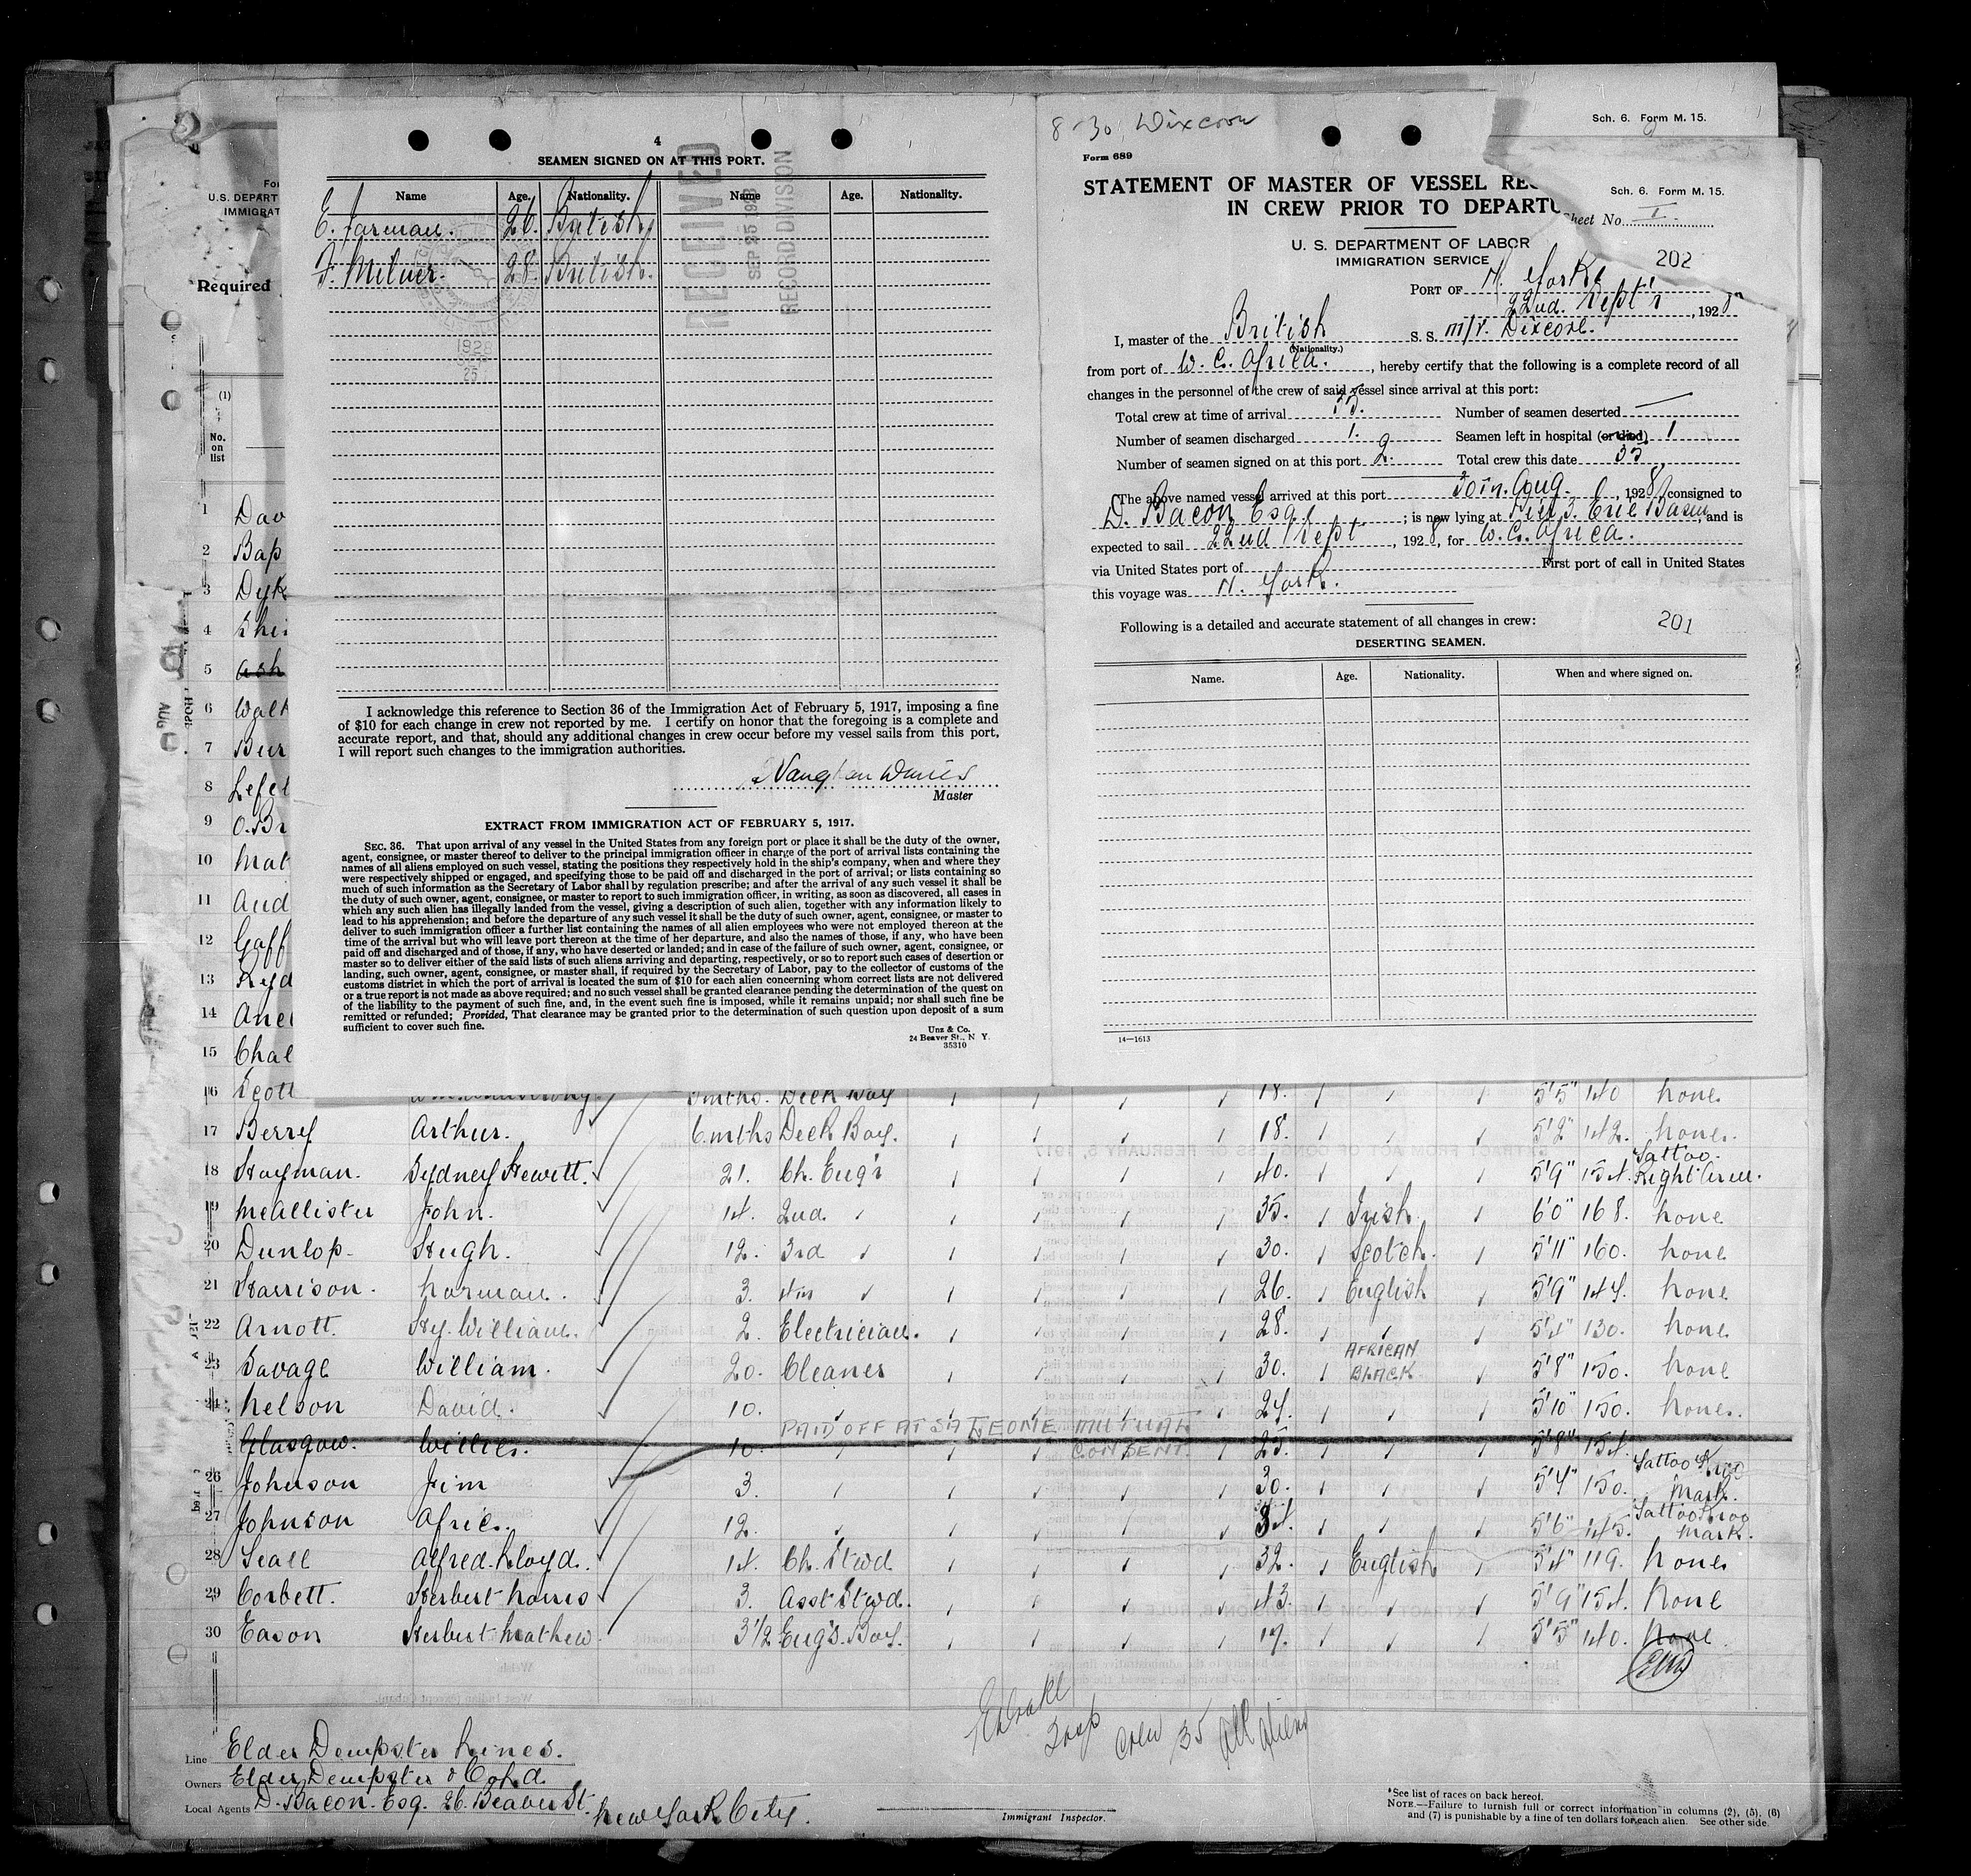 4
SEAMEN SIGNED ON AT THIS PORT.
Name Age. Nationality. Name Age. Nationality.
E. Jarman. 26. British
F. Milner. 28. British.
RECEIVED
SEP 25 1928
RECORD DIVISION
1928
25
I acknowledge this reference to Section 36 of the Immigration Act of February 5, 1917, imposing a fine
of $10 for each change in crew not reported by me. I certify on honor that the foregoing is a complete and
accurate report, and that, should any additional changes in crew occur before my vessel sails from this port,
I will report such changes to the immigration authorities.
Master
EXTRACT FROM IMMIGRATION ACT OF FEBRUARY 5, 1917.
SEC. 36. That upon arrival of any vessel in the United States from any foreign port or place it shall be the duty of the owner,
agent, consignee, or master thereof to deliver to the principal immigration officer in charge of the port of arrival lists containing the
names of all aliens employed on such vessel, stating the positions they respectively hold in the ship's company, when and where they
were respectively shipped or engaged, and specifying those to be paid off and discharged in the port of arrival; or lists containing so
much of such information as the Secretary of Labor shall by regulation prescribe; and after the arrival of any such vessel it shall be
the duty of such owner, agent, consignee, or master to report to such immigration officer, in writing, as soon as discovered, all cases in
which any such alien has illegally landed from the vessel, giving a description of such alien, together with any information likely to
lead to his apprehension; and before the departure of any such vessel it shall be the duty of such owner, agent, consignee, or master to
deliver to such immigration officer a further list containing the names of all alien employees who were not employed thereon at the
time of the arrival but who will leave port thereon at the time of her departure, and also the names of those, if any, who have been
paid off and discharged and of those, if any, who have deserted or landed; and in case of the failure of such owner, agent, consignee, or
master so to deliver either of the said lists of such aliens arriving and departing, respectively, or so to report such cases of desertion or
landing, such owner, agent, consignee, or master shall, if required by the Secretary of Labor, pay to the collector of customs of the
customs district in which the port of arrival is located the sum of $10 for each alien concerning whom correct lists are not delivered
or a true report is not made as above required; and no such vessel shall be granted clearance pending the determination of the quest on
of the liability to the payment of such fine, and, in the event such fine is imposed, while it remains unpaid; nor shall such fine be
remitted or refunded; Provided, That clearance may be granted prior to the determination of such question upon deposit of a sum
sufficient to cover such fine.
Unz & Co.
24 Beaver St., N Y.
35310
8-30 Dixcove
Form 689
STATEMENT OF MASTER OF VESSEL
IN CREW PRIOR TO
U. S. DEPARTMENT OF LABOR
IMMIGRATION SERVICE
Sch. 6. Form M. 15.
Sch. 6. Form M. 15.
Sheet No. I.
202
PORT OF N. York
22nd. Sept'r, 1928
I, master of the British S. S. M/V. Dixcove.
(Nationality.)
from port of W. C. Africa., hereby certify that the following is a complete record of all
changes in the personnel of the crew of said vessel since arrival at this port:
Total crew at time of arrival 35. Number of seamen deserted —
Number of seamen discharged 1. Seamen left in hospital (or died) 1
Number of seamen signed on at this port 2. Total crew this date 35
The above named vessel arrived at this port 30th. Aug., 1928, consigned to
D. Bacon Esq.; is now lying at Pier 3. Erie Basin, and is
expected to sail 22nd Sept, 1928, for W. C. Africa.
via United States port of First port of call in United States
this voyage was N. York.
Following is a detailed and accurate statement of all changes in crew:
201
DESERTING SEAMEN.
Name. Age. Nationality. When and where signed on.
14—1613
U.S. DEPART
IMMIGRAT
Required
(1)
No.
on
list
AUG
1 Dav
2 Bap
3 Dyk
4 Shi
5 Ash
6 Walk
7 Bur
8 Lefe
9 O.Br
10 Mat
11 And
12 Gaff
13 Ryd
14 Ane
15 Chal
16 Scott 3mths. Deck Boy 18. 5'5" 140 none
17 Berry Arthur. 6.mths Deck Boy. 18. 5'2" 142. none.
18 Hayman. Sydney Hewitt. 21. Ch. Eng'r 40. 5'9" 154. Tattoo. Right Arm.
19 McAllister John. 14. 2nd. 35. Irish. 6'0" 168. none
20 Dunlop Hugh. 12. 3rd 30. Scotch. 5'11" 160. none
21 Harrison. Norman. 3. 4th 26. English 5'9" 147. none
22 Arnott. Hy. William. 2. Electrician. 28. 5'4" 130. none
23 Savage William. 20. Cleaner 30. AFRICAN BLACK 5'8" 150. none
24 Nelson David. 10. 24. 5'10" 150. none.
PAID OFF AT SA LEONE MUTUAL CONSENT.
Glasgow. Willie. 10. 25. 5'8" 154.
26 Johnson Jim 3. 30. 5'4" 150. Tattoo Mark.
27 Johnson Afric. 12. 34. 5'6" 145. Tattoo Mark.
28 Seall Alfred. Lloyd. 14. Ch. Stwd 32. English 5'4" 119. none
29 Corbett. Herbert Norris 3. Asst Stwd. 43. 5'9" 154. None
30 Eason Herbert Mathew. 3½ Eng's. Boy. 17. 5'5" 140. none.
Crew 35 all aliens
Line Elder Dempster Lines.
Owners Elder Dempster & Co Ltd.
Local Agents D. Bacon. Esq. 26. Beaver St. New York City.
Immigrant Inspector.
*See list of races on back hereof.
NOTE.—Failure to furnish full or correct information in columns (2), (5), (6)
and (7) is punishable by a fine of ten dollars for each alien. See other side.